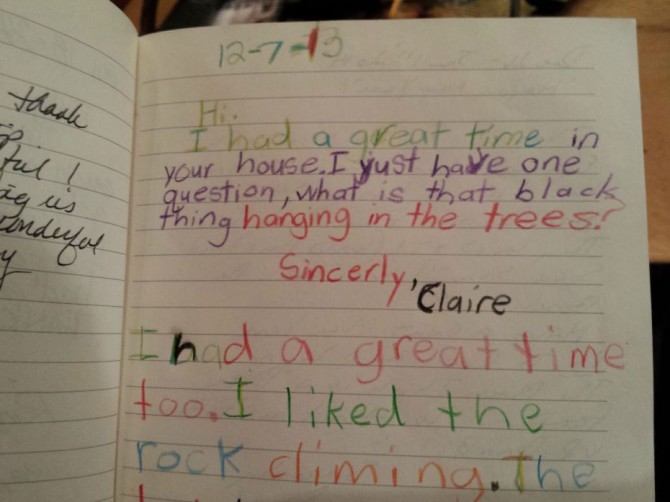 thank
ful!
us
wonderful
y
12-7-13
Hi.
I had a great time in
your house. I just have one
question, what is that black
thing hanging in the trees?
Sincerly,
Claire
I had a great time
too. I liked the
rock climing. The